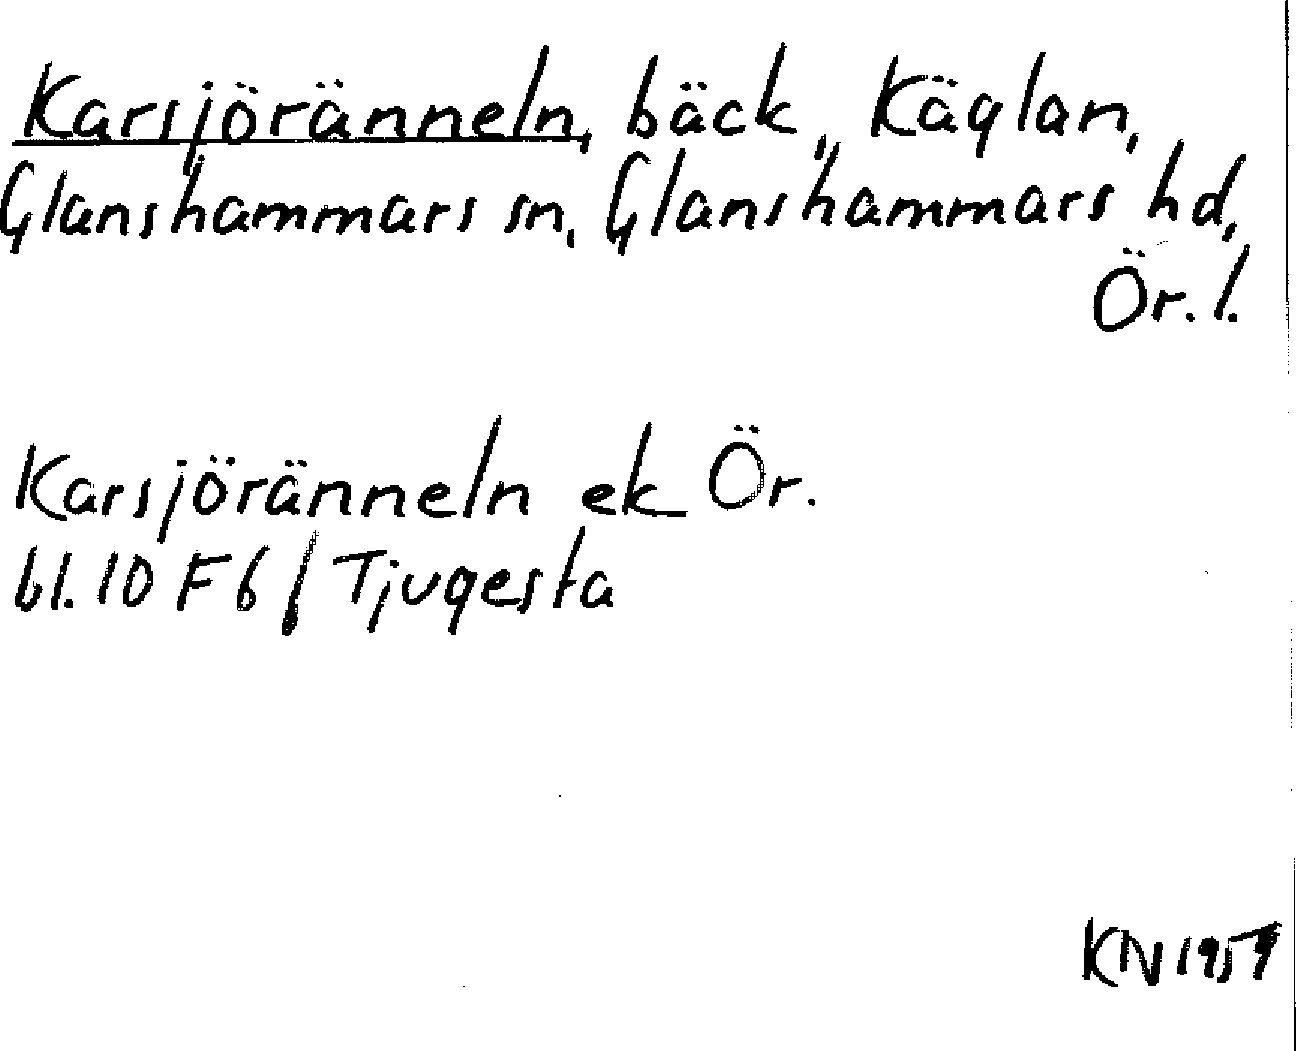 Karsjöränneln, bäck, Käglan,
Glanshammars sn, Glanshammars hd,
Ör. l.
Karsjöränneln ek Ör.
bl. 10 F 6 / Tjugesta
KN 1957